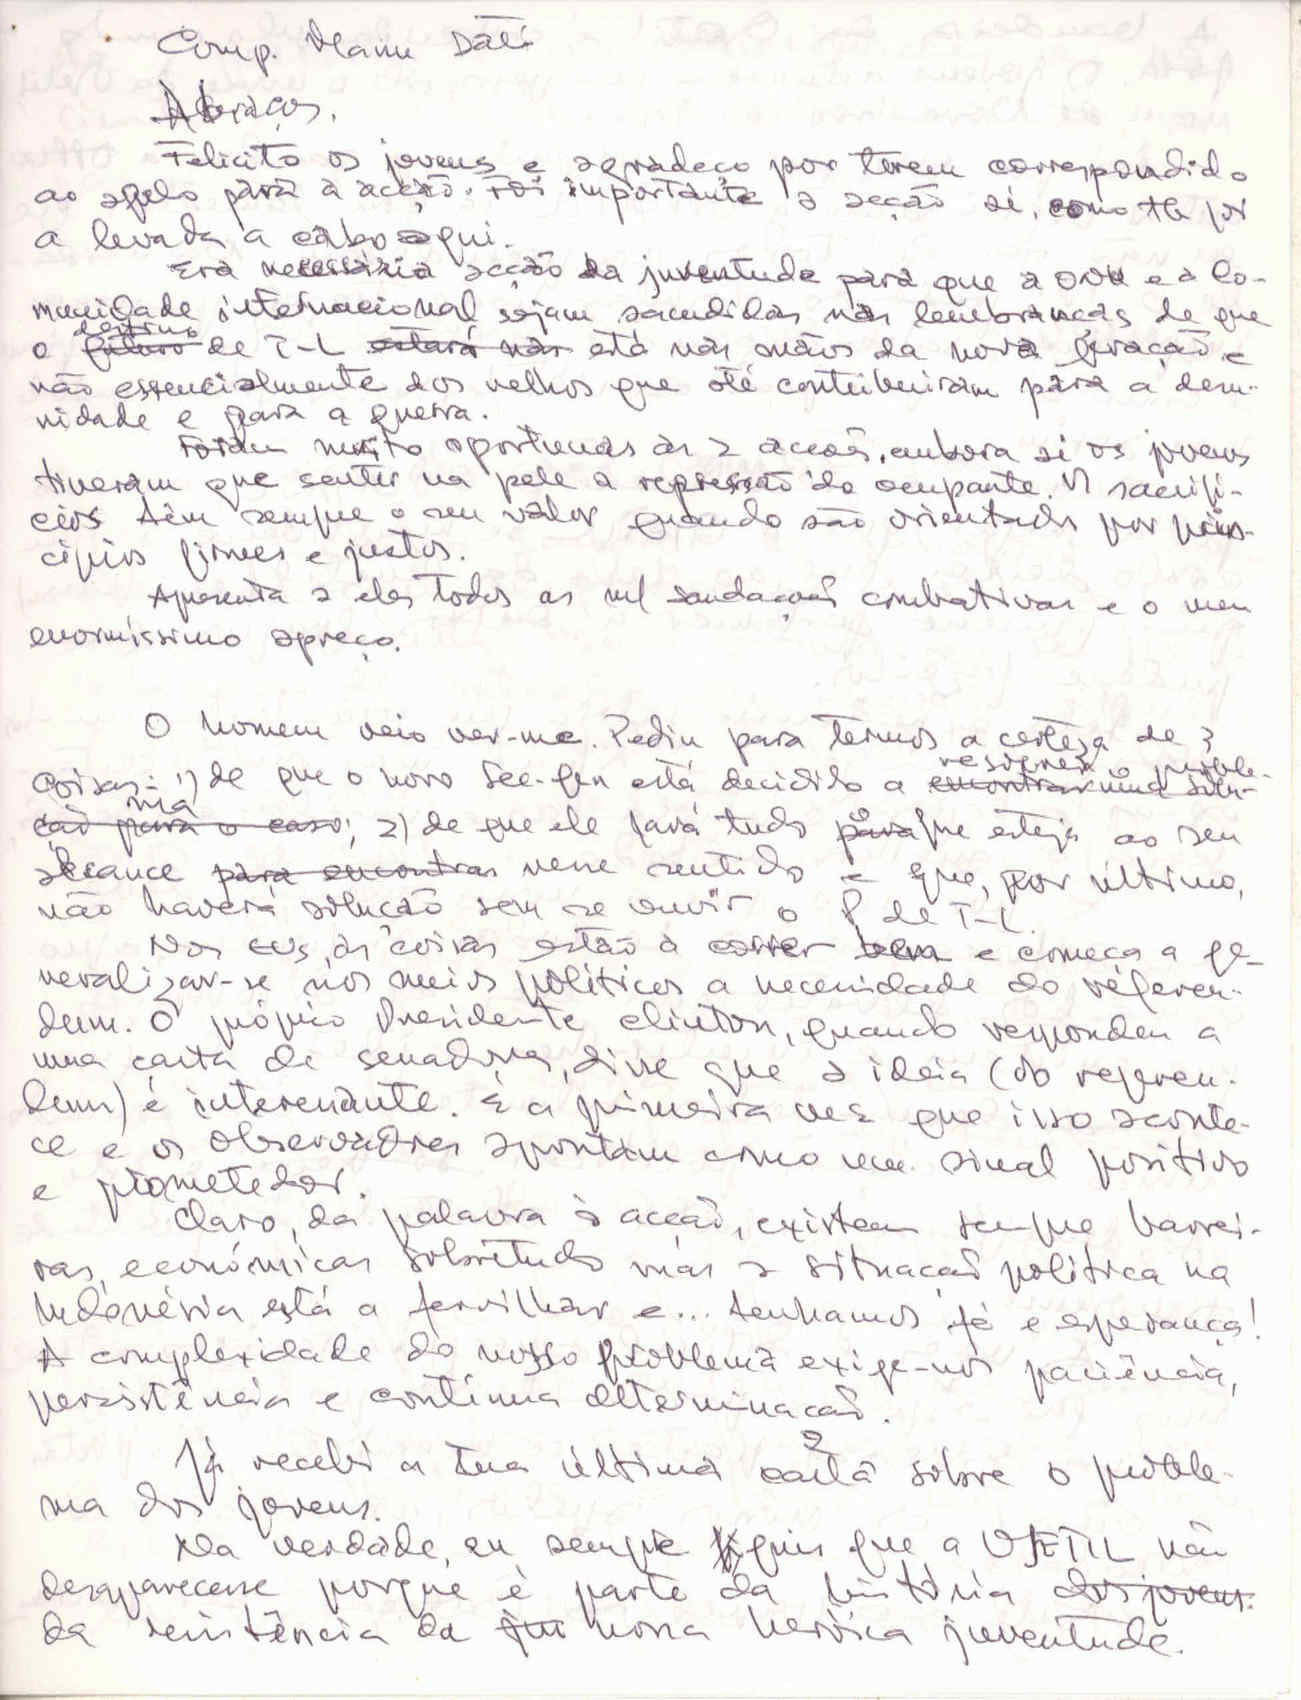 Comp. Manu Dati
Abraços.
Felicito os jovens e agradeço por terem correspondido
ao apelo para a acção. Foi importante a acção aí, como tb foi
a levada a cabo aqui.
Era necessária acção da juventude para que a ONU e a Co-
munidade internacional sejam sacudidas nas lembranças de que
o futuro destino de T-L estará nas está nas mãos da nova geração e
não essencialmente dos velhos que até contribuiram para a desu-
nidade e para a guerra.
Foram muito oportunas as 2 acções, embora aí os jovens
tiveram que sentir na pele a repressão do ocupante. Os sacrifí-
cios têm sempre o seu valor quando são orientados por prin-
cípios firmes e justos.
Apresenta a eles todos as mil saudações combativas e o meu
enormíssimo apreço.
O homem veio ver-me. Pediu para termos a certeza de 3
coisas: 1) de que o novo Sec-Gen está decidido a encontrar uma solu- resolver o proble-
ção para o caso ma; 2) de que ele fará tudo para o que esteja ao seu
alcance para encontrar nesse sentido e que, por último,
não haverá solução sem se ouvir o P de T-L.
Nos EUS, as coisas estão a correr bem e começa a ge-
neralizar-se nos meios políticos a necessidade do referen-
dum. O próprio Presidente Clinton, quando respondeu a
uma carta de senadores, disse que a ideia (do referen-
dum) é interessante. É a primeira vez que isso aconte-
ce e os observadores apontam como um sinal positivo
e prometedor.
Claro, da palavra à acção, existem sempre barrei-
ras, económicas sobretudo mas a situação política na
Indonésia está a fervilhar e... tenhamos fé e esperança!
A complexidade do nosso problema exige-nos paciência,
persistência e contínua determinação.
Já recebi a tua última carta sobre o proble-
ma dos jovens.
Na verdade, eu sempre quis que a OJETIL não
desaparecesse porque é parte da história dos jovens
da resistência da nossa heróica juventude.